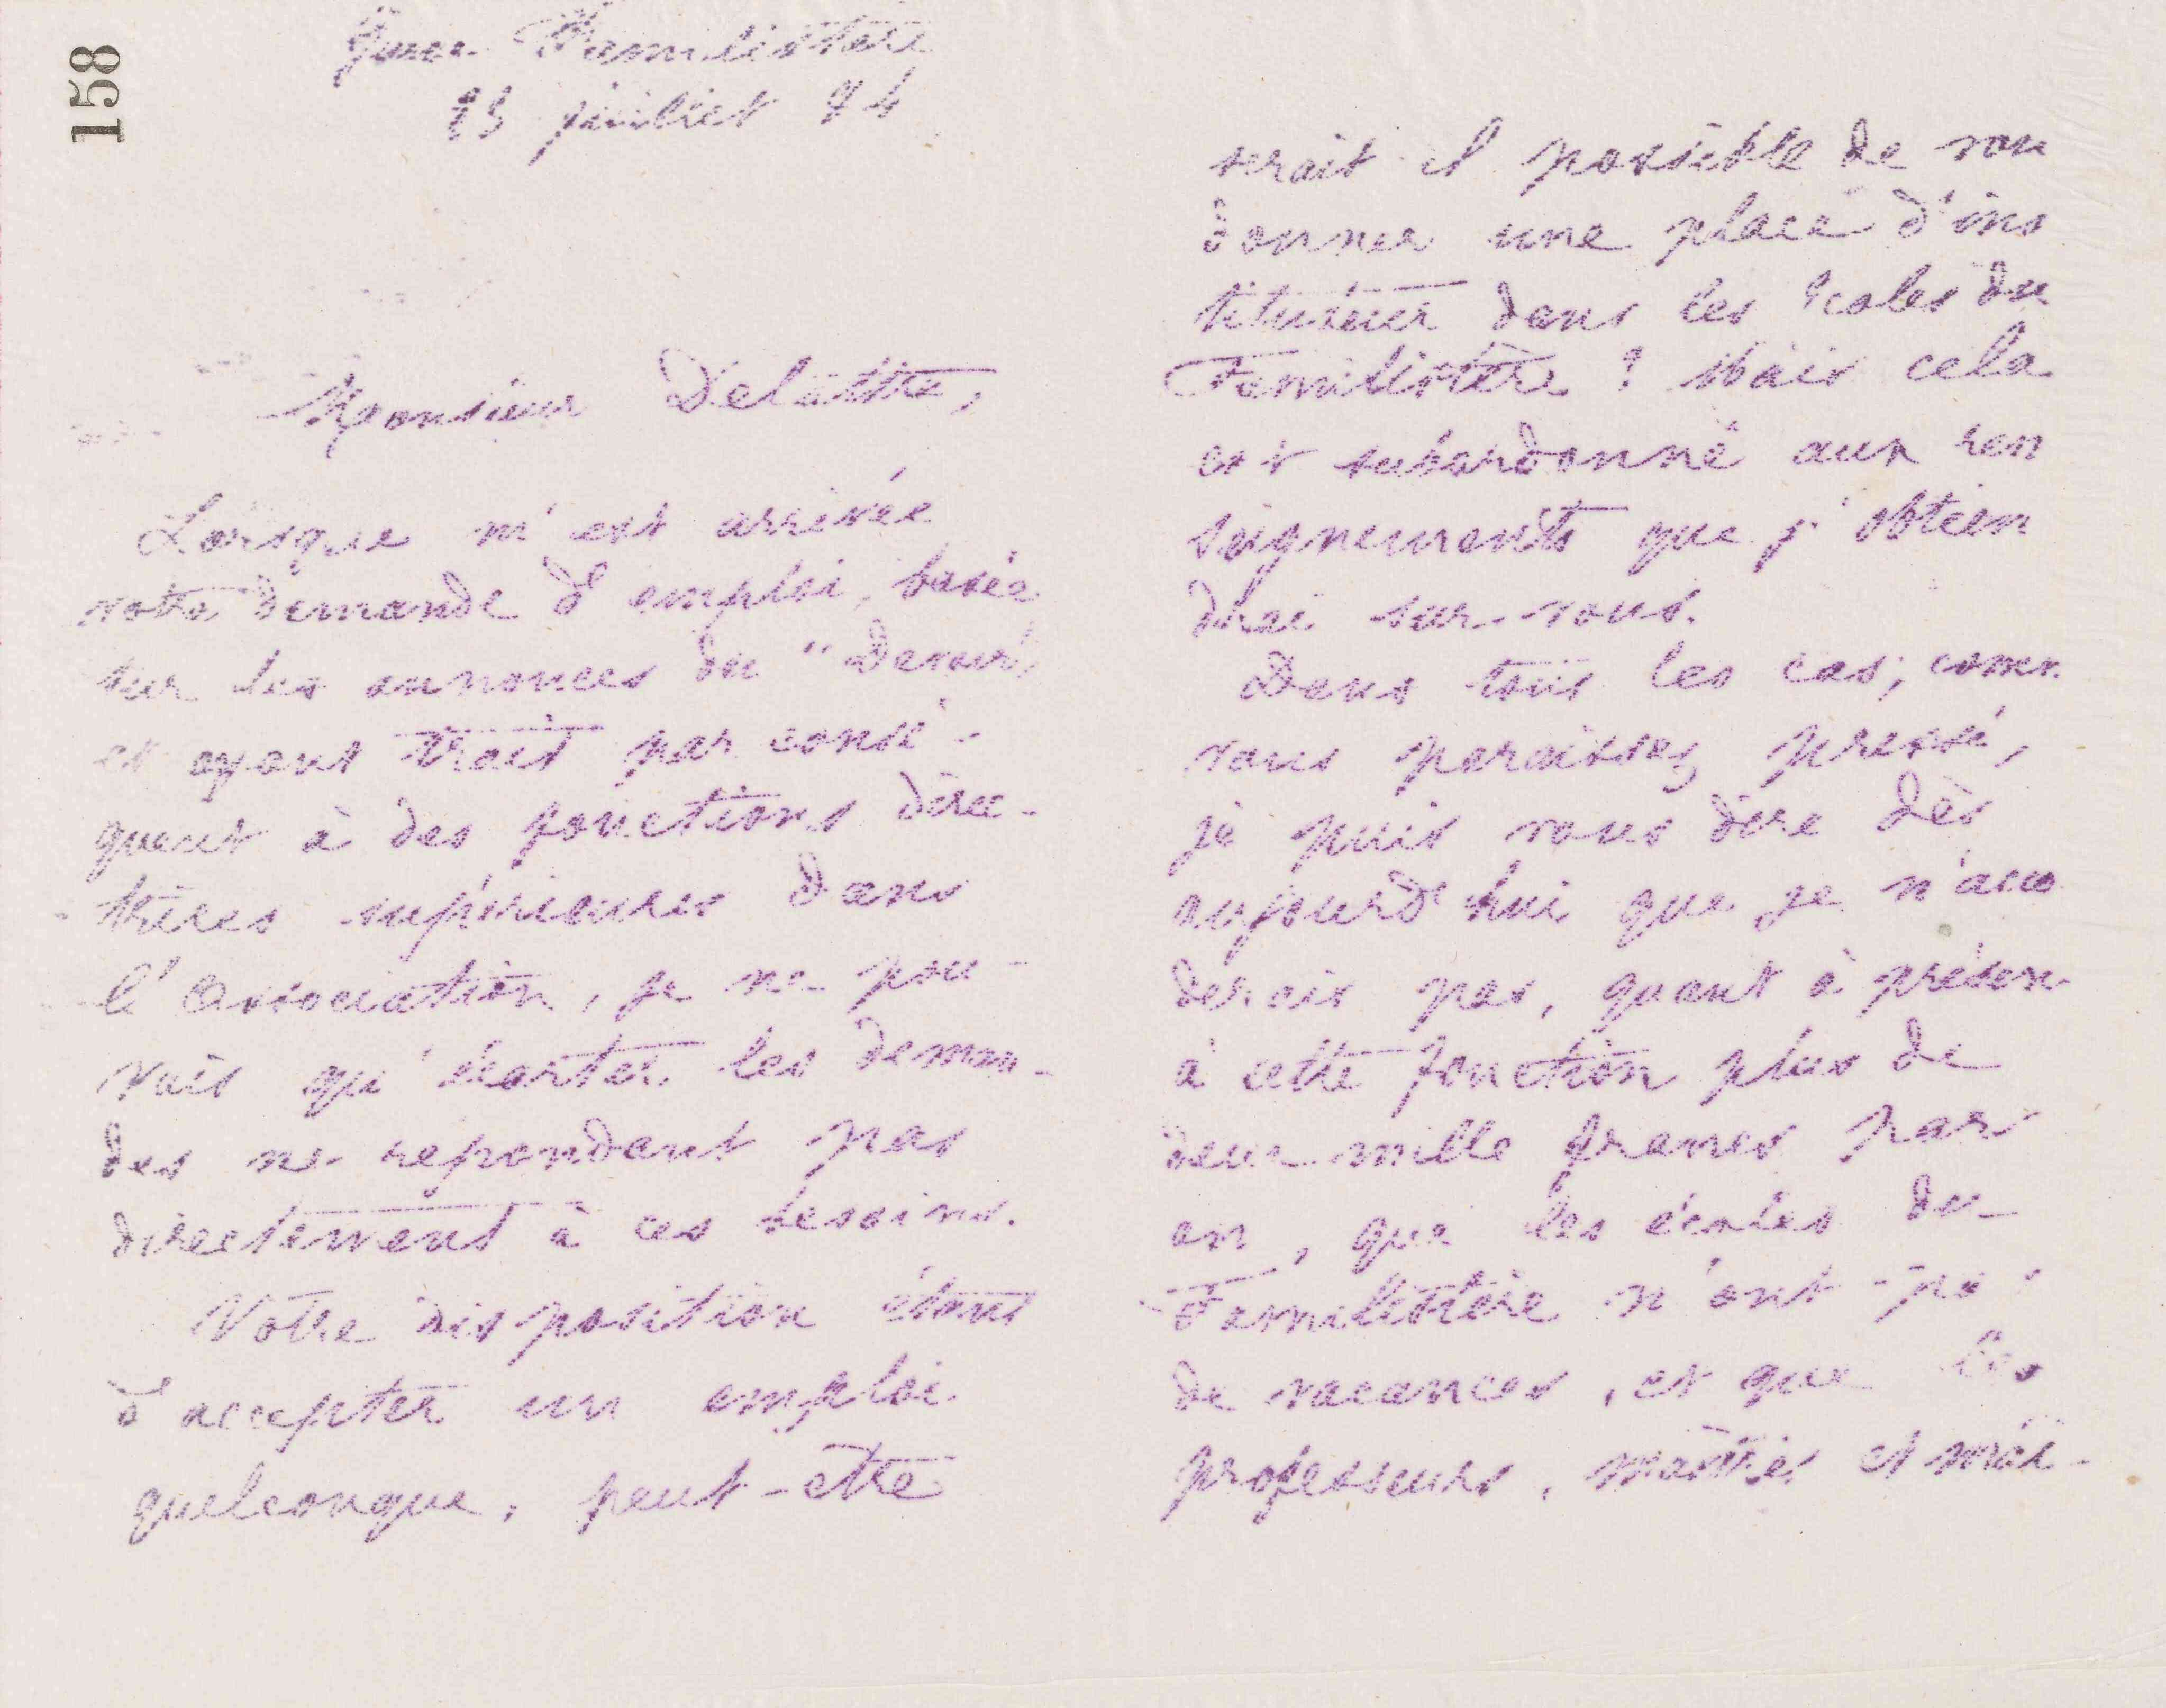 158
Guise Familistère
13 juillet 84
Monsieur Delattre,
Lorsque m'est arrivée
votre demande d'emploi, basée
sur les annonces du "Devoir"
et ayant trait par consé-
quent à des fonctions direc-
trices supérieures dans
l'Association, je ne pou-
vais qu'écarter les deman-
des ne repondant pas
directement à ces besoins.
Votre disposition étant
d'accepter un emploi
quelconque, peut-etre
serait il possible de vou
donner une place d'ins
tituteur dans les écoles du
Familistère ? Mais cela
est subordonné aux ren
seignements que j'obtien
drai sur vous.
Dans tous les cas, comm
vous paraissez pressé,
je puis vous dire dès
aujourd'hui que je n'acco
derais pas, quant à présen
à cette fonction plus de
deux mille francs par
an, que les écoles du
Familistère n'ont pa
de vacances, et que les
professeurs, maîtres et maî-